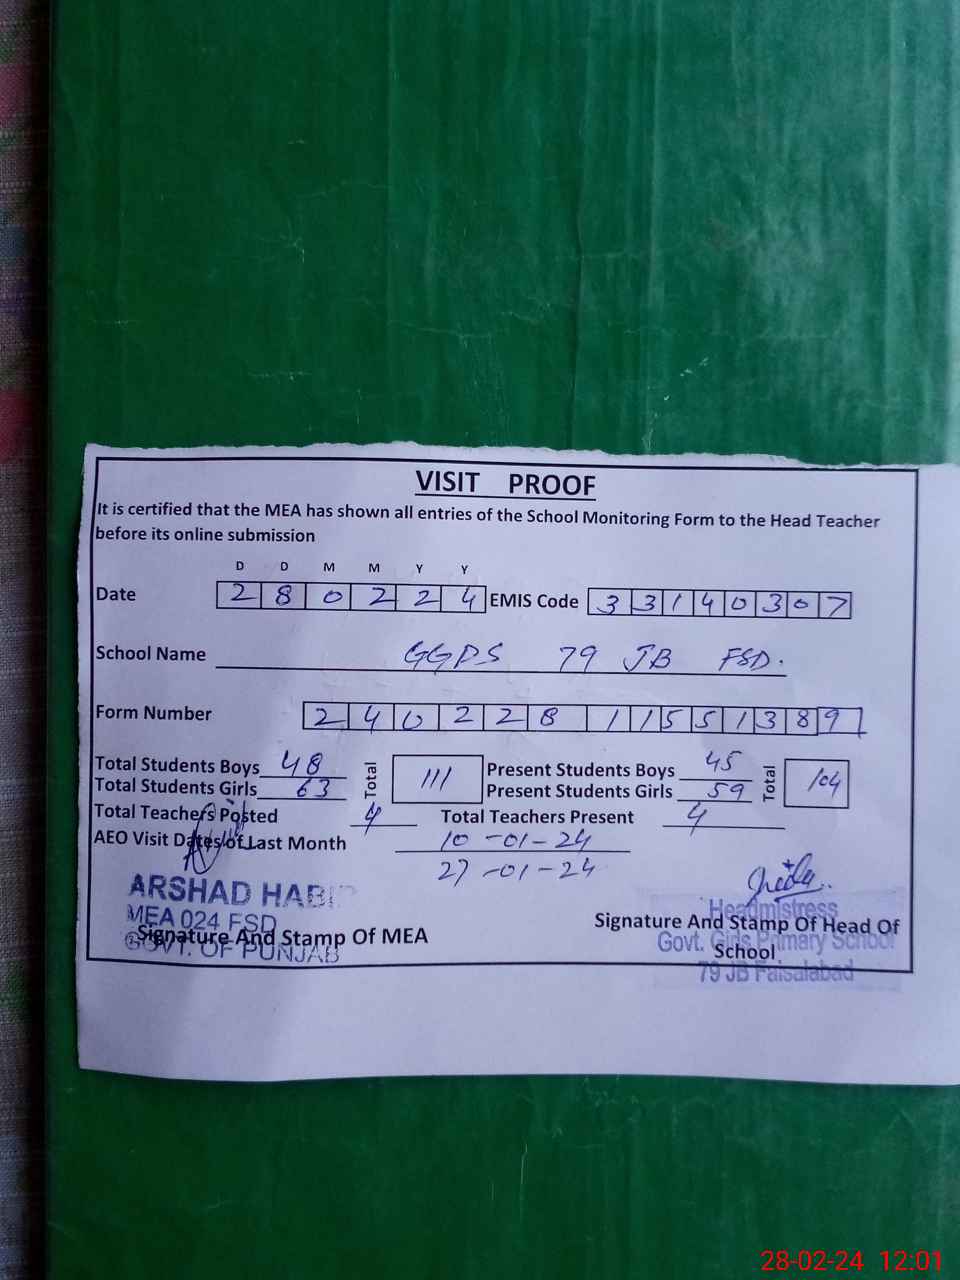 VISIT PROOF
It is certified that the MEA has shown all entries of the School Monitoring Form to the Head Teacher
before its online submission
D D M M Y Y
Date 2 8 0 2 2 4 EMIS Code 3 3 1 4 0 3 0 7
School Name GGPS 79 JB FSD.
Form Number 2 4 0 2 2 8 1 1 5 5 1 3 8 9
Total Students Boys 48 Total 111 Present Students Boys 45 Total 104
Total Students Girls 63 Present Students Girls 59
Total Teachers Posted 4 Total Teachers Present 4
AEO Visit Dates of Last Month 10-01-24
27-01-24
ARSHAD HABIB
MEA 024 FSD
GOVT. OF PUNJAB
Signature And Stamp Of MEA
Headmistress
Govt. Girls Primary School
79 JB Faisalabad
Signature And Stamp Of Head Of
School
28-02-24 12:01